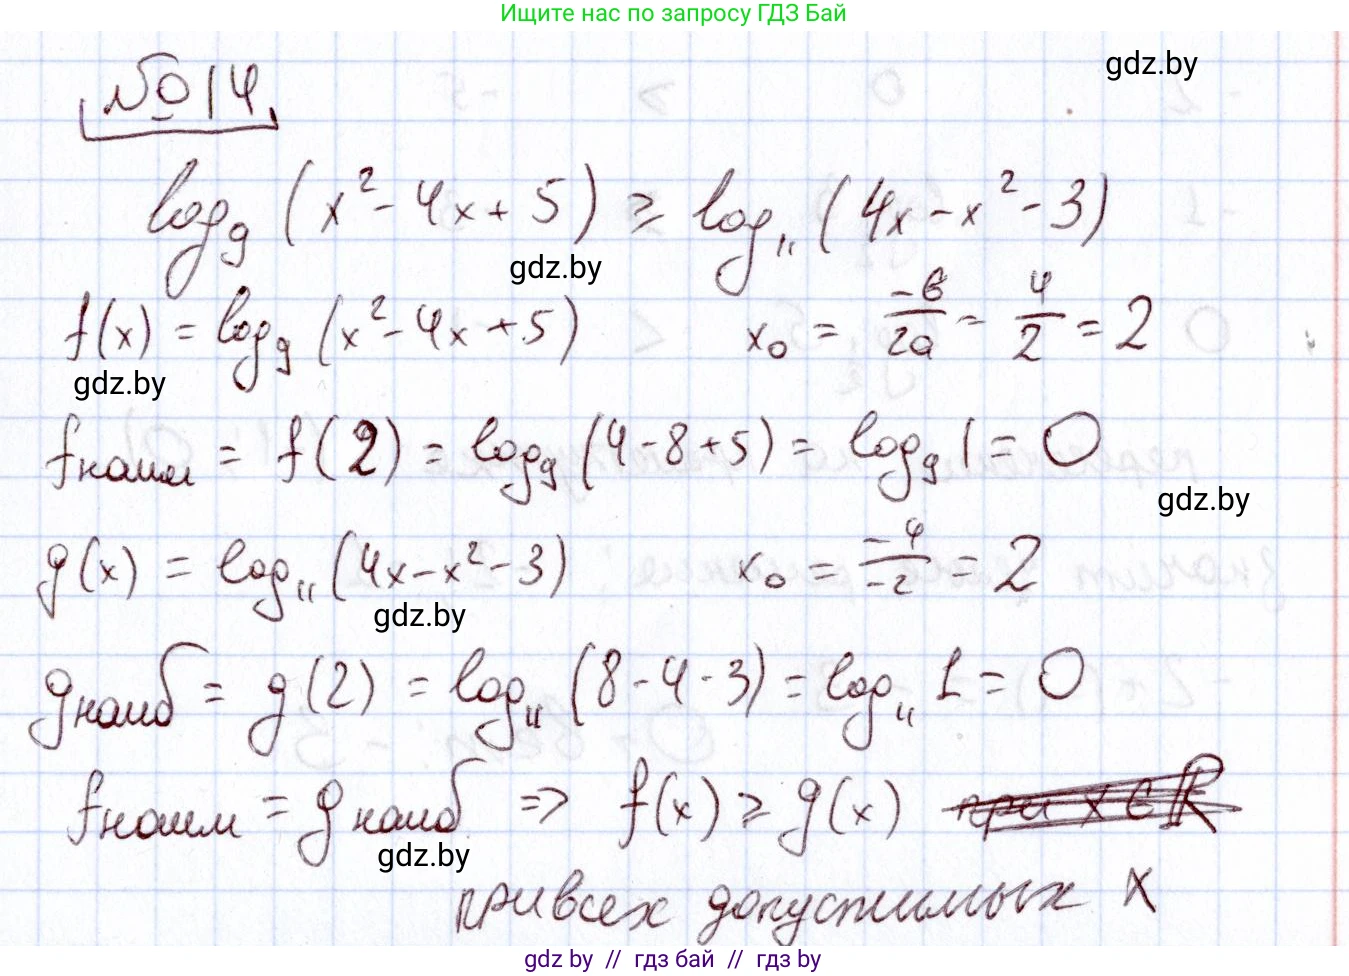 Ищите нас по запросу ГДЗ Бай
gdz.by
№ 14
log₉ (x² - 4x + 5) ≥ log₁₁ (4x - x² - 3)
gdz.by
f(x) = log₉ (x² - 4x + 5) x₀ = -в/2a = 4/2 = 2
gdz.by
fнаим = f(2) = log₉ (4 - 8 + 5) = log₉ 1 = 0
gdz.by
g(x) = log₁₁ (4x - x² - 3) x₀ = -4/-2 = 2
gdz.by
gнаиб = g(2) = log₁₁ (8 - 4 - 3) = log₁₁ 1 = 0
fнаим = gнаиб ⇒ f(x) ≥ g(x) при x ∈ ℝ
gdz.by
при всех допустимых x
gdz by // гдз бай // гдз by